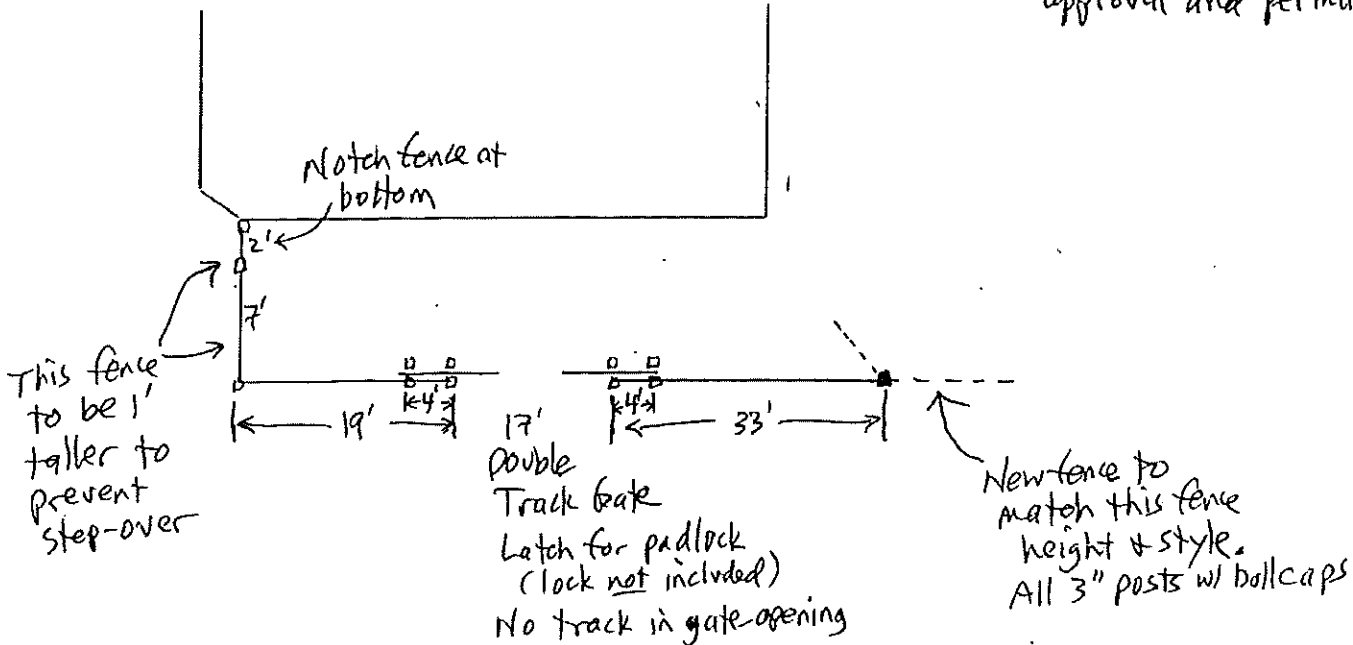 approval and
Notch fence at
bottom
2'
7'
This fence
to be 1'
taller to
prevent
step-over
4'
4'
19'
17'
33'
Double
Track Gate
Latch for padlock
(lock not included)
No track in gate opening
New fence to
match this fence
height & style.
All 3" posts w/ ballcaps